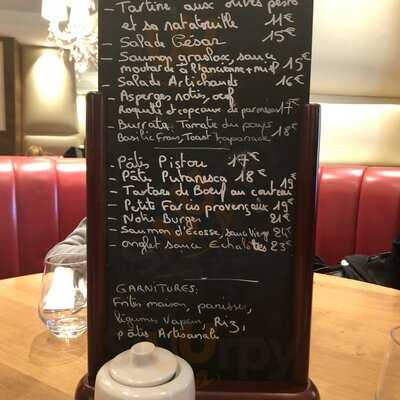 - Tartine aux olives pesto
et sa ratatouille 11€
- Salade César 15€
- Saumon gravlax, sauce
moutarde à l'ancienne + miel 15€
- Salade Artichauds 16€
- Asperges rôtis, œuf
Roquette et copeaux de parmesan 17€
- Burrata, Tomate du pays
Basilic Frais, Toast tapenade 18€
- Pâtes Pistou 17€
- Pâtes Putanesca 18€
- Tartare de Boeuf au couteau 19€
- Petits Farcis provençaux 19€
- Notre Burger 21€
- Saumon d'Ecosse, sauce vierge 21€
- onglet sauce Echalotes 23€
GARNITURES:
Frites maison, panisses,
légumes Vapeur, Riz,
pâtes Artisanale